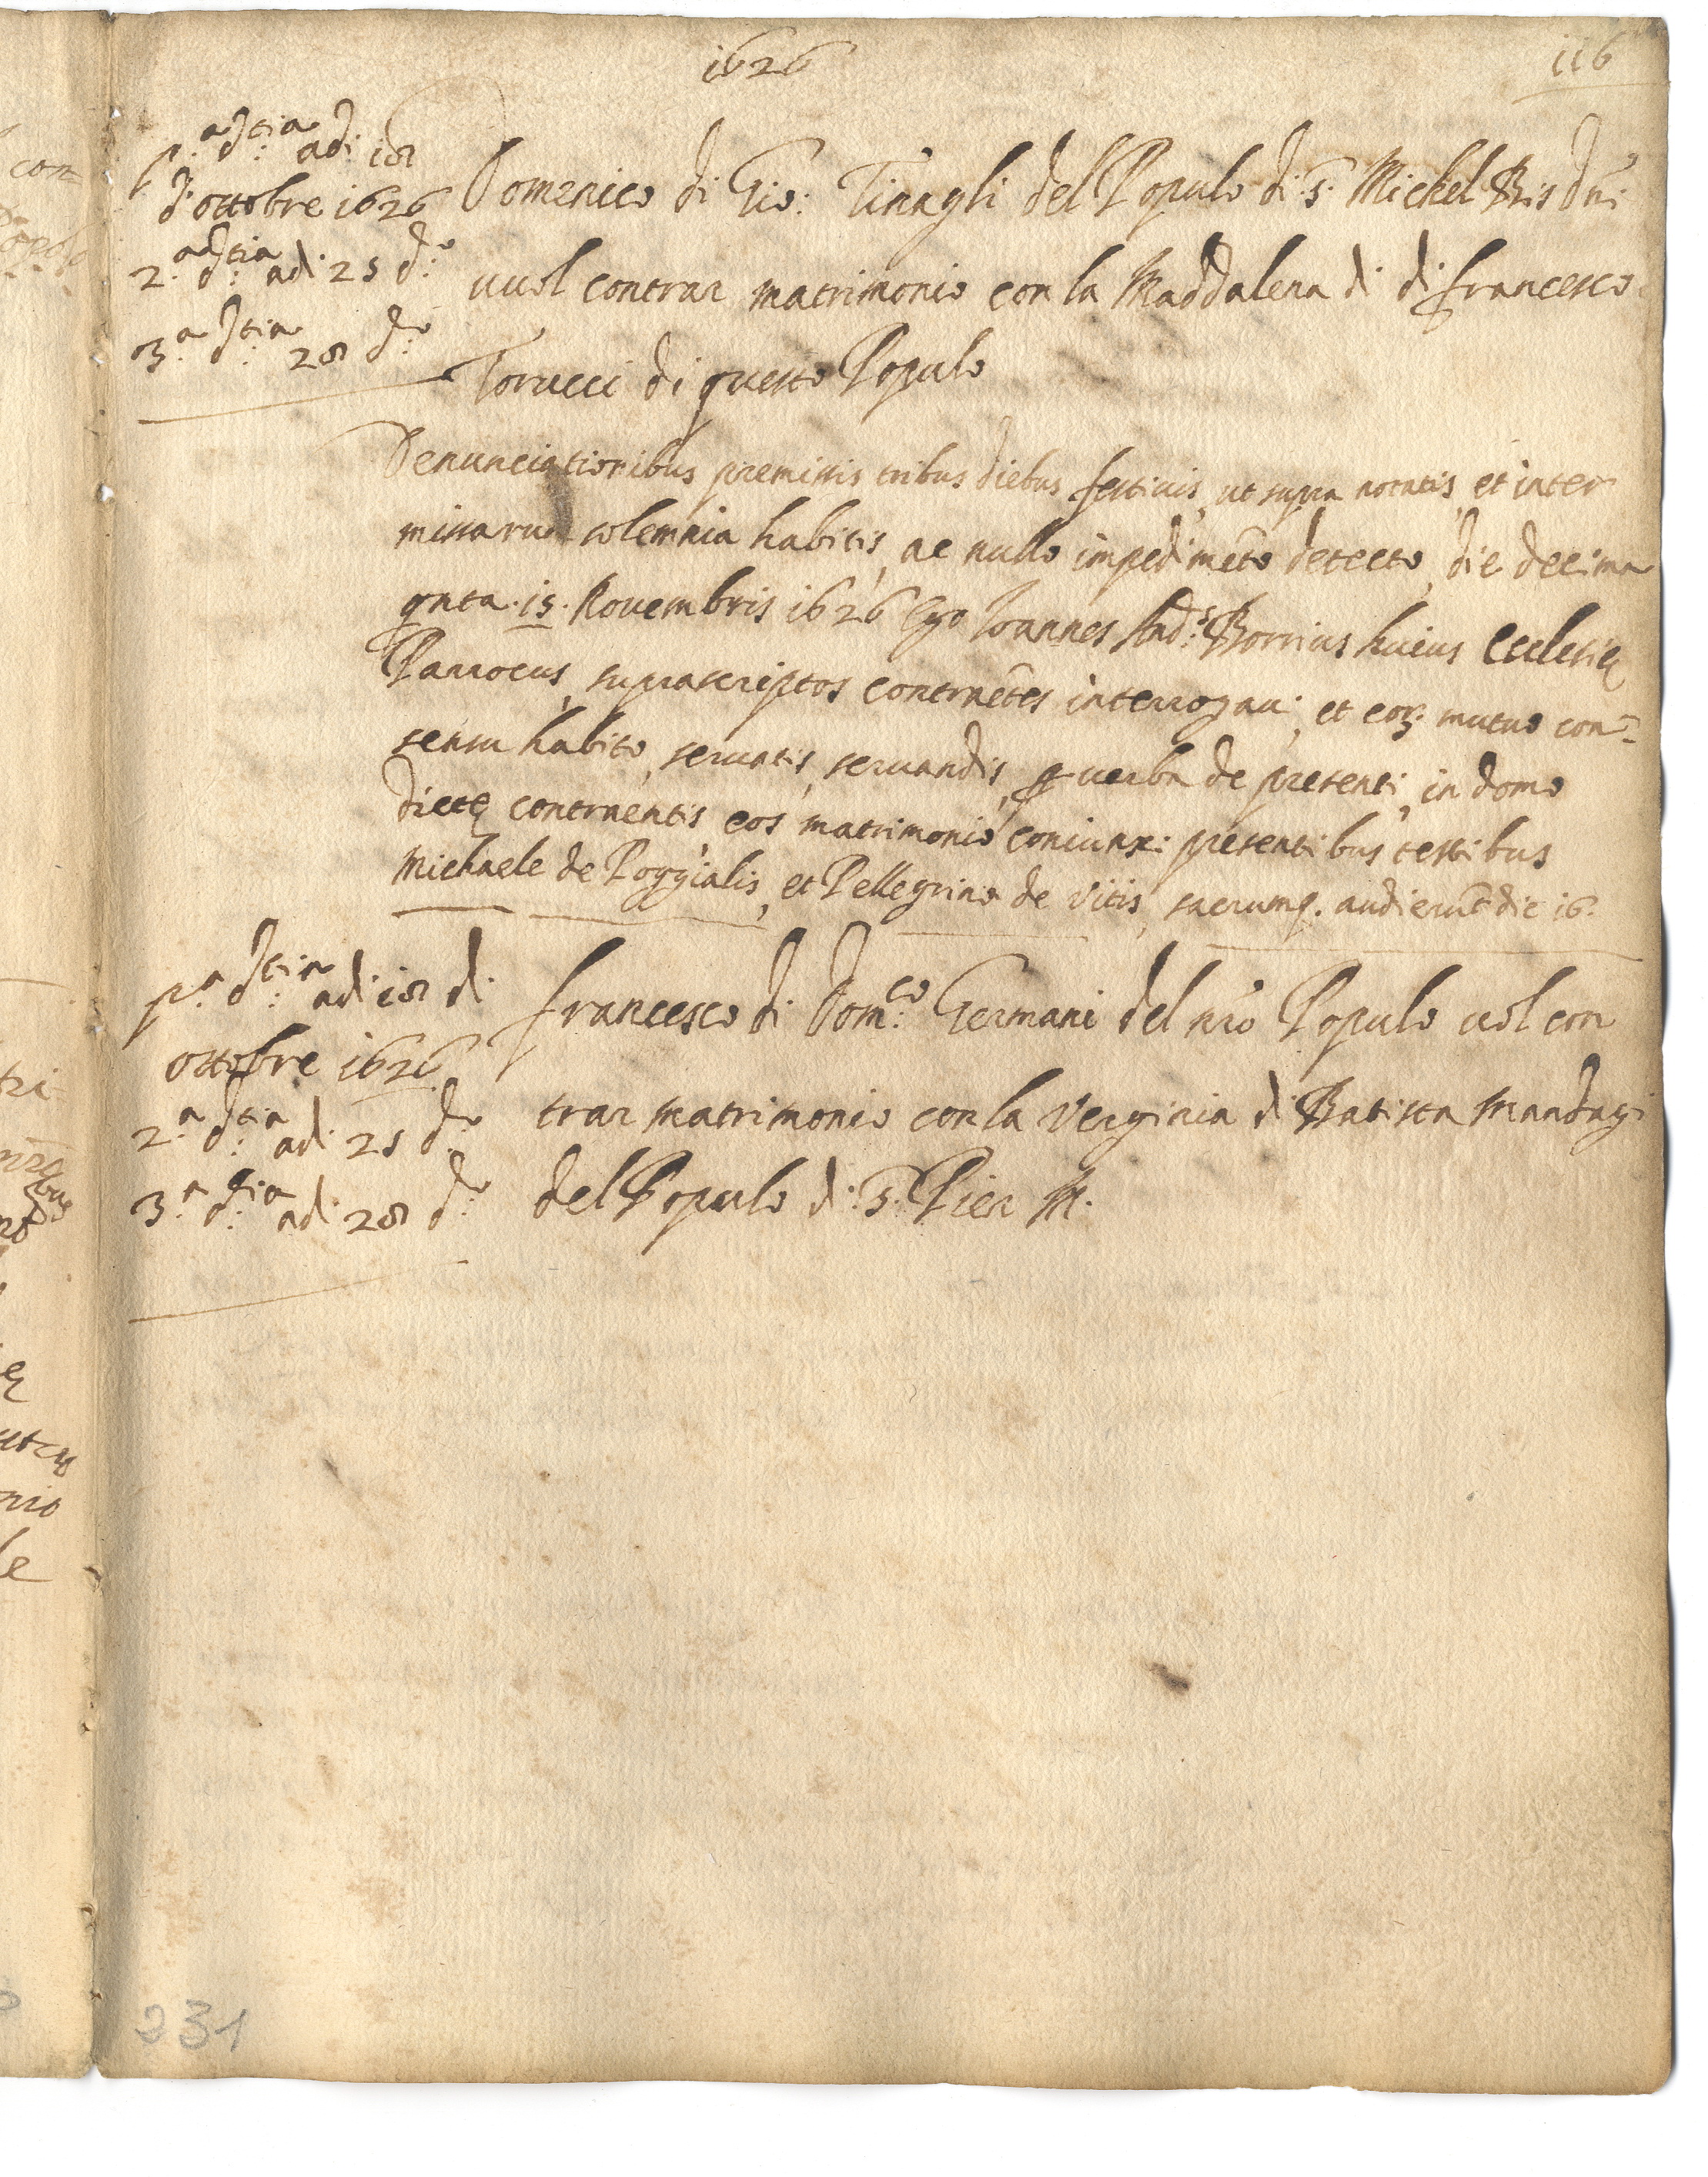 1626
116
p.ª d:tia adi 18
d'ottobre 1626
2.ª d:tia adi 25 d:o
3.ª d:tia 28 d:o
Domenico di Gio: Tinagli del Populo di S. Michel Bisdni:
vuol contrar matrimonio con la Maddalena di di francesco
Torucci di questo Populo
Denunciationibus premissis tribus diebus festiuis, ut supra notatis, et inter
missarum solemnia habitis, ac nullo impedimēto detecto, die decima
qnta .15. Nouembris 1626 Ego Joannes And:s Borrius huius Ecclesię
Parrocus, suprascriptos contraētes interrogaui, et eoꝝ mutuo con-
sensu habito, seruatis, seruandis, ꝑ uerba de presenti, in domo
dictę contraentis eos matrimonio coniunxi: presentibus testibus
Michaele de Poggialis, et Pellegrino de Vitis, sacrumq. audierūt die 16.
p.ª d:tia adi 18 di
ottobre 1626
2.ª d:tia adi 25 d:o
3.ª d:tia adi 28 d:o
francesco di Dom:co Germani del nro Populo uol con
trar matrimonio con la Verginia di Batista Mandagi
del Populo di S. Pier M.
231